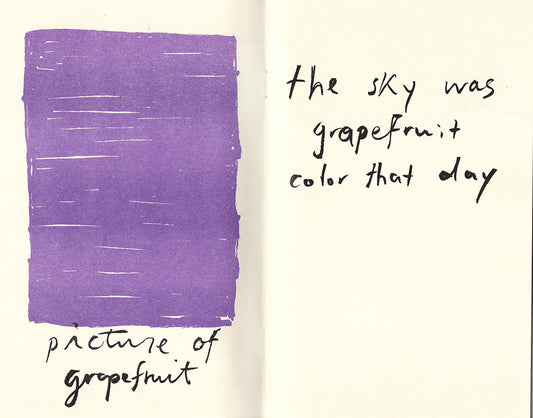 picture of
grapefruit
the sky was
grapefruit
color that day